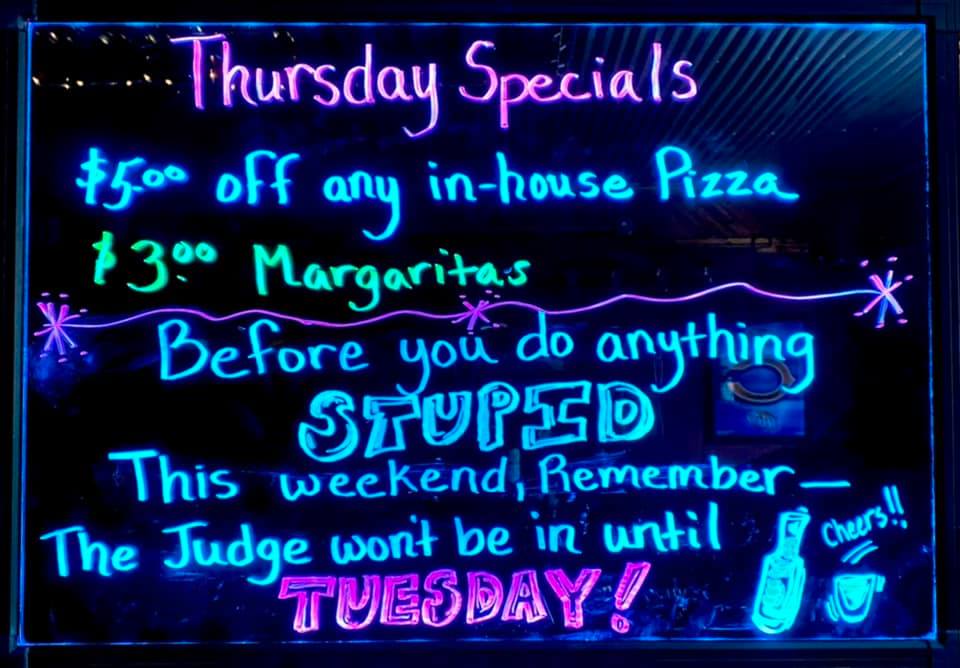 Thursday Specials
$5.00 off any in-house Pizza
$3.00 Margaritas
Before you do anything
STUPID
This weekend, Remember —
The Judge won't be in until
TUESDAY!
Cheers!!